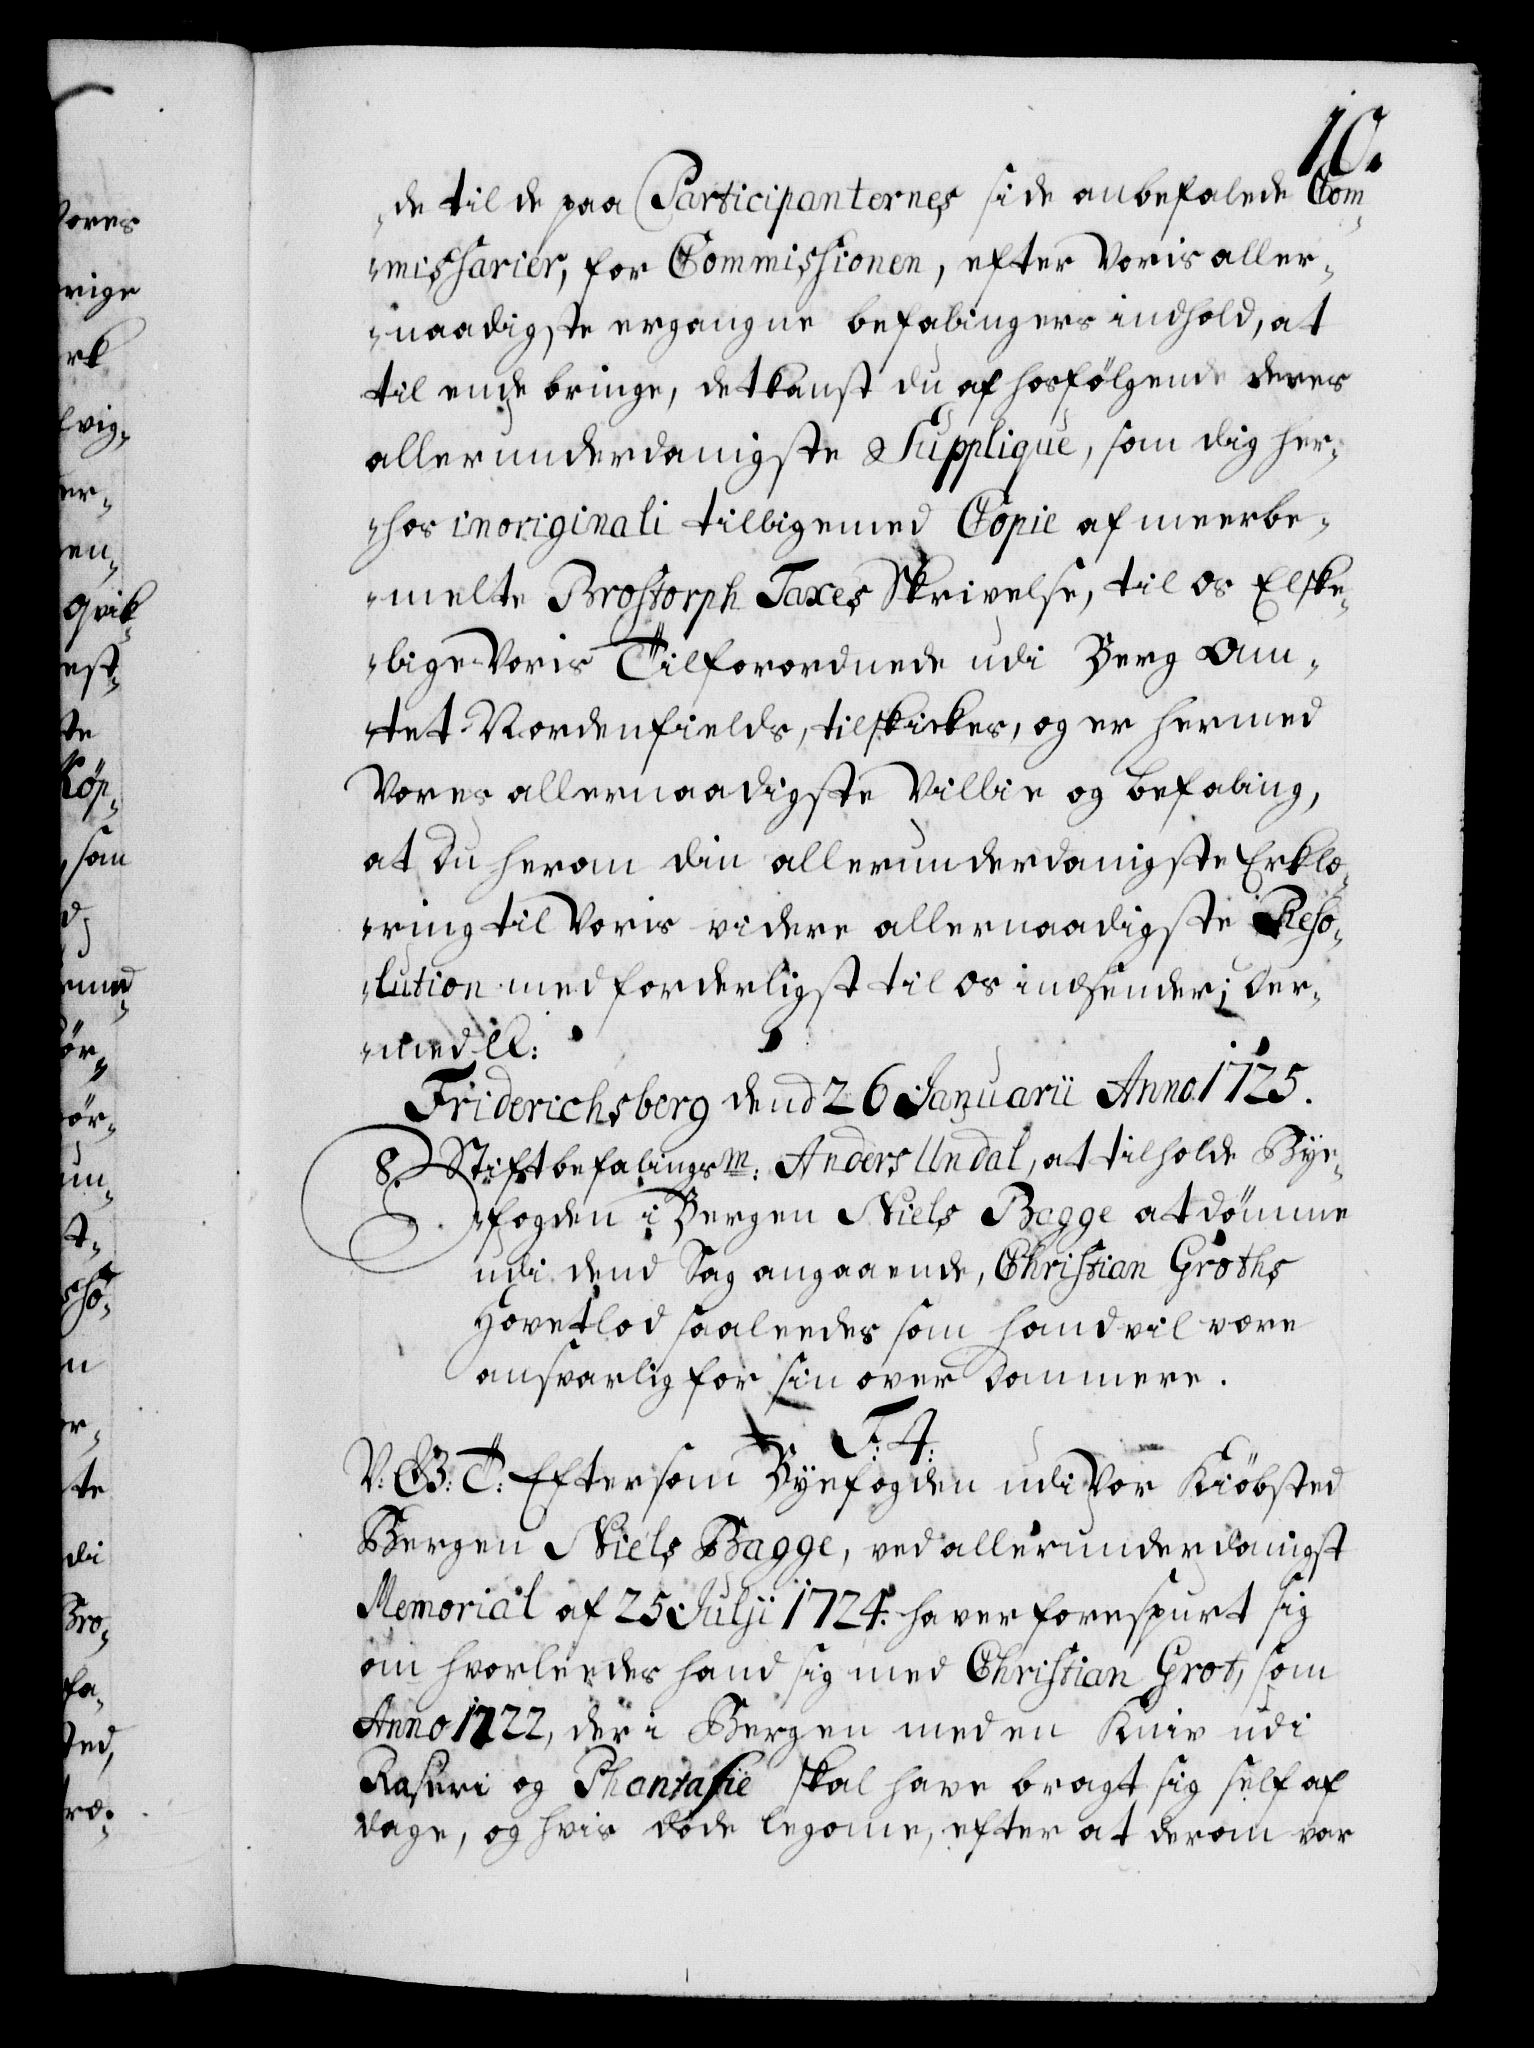 10.
„de til de paa Participanternes side anbefalede Com„
„missarier, for Commissionen, efter Voris aller„
„naadigste ergangne befalingers indhold, at
til ende bringe, det kanst du af hosfölgende deres
allerunderdanigste Supplique, som dig her„
„hos in originali tillige med Copie af meerbe„
„melte Brostorph Taxes Skrivelse, til os Elske„
„lige Voris Tilforordnede udi Berg Am„
„tet Nordenfields, tilskickes, og er hermed
Vores allernaadigste Villie og befaling,
at du herom din allerunderdanigste Erklæ„
„ring til Voris videre allernaadigste Reso„
„lution med forderligst til os indsender; Der„
„med &c:
Friderichsberg dend 26 Januarii Anno 1725.
8. Stiftbefalingsm: Anders Undal, at tilholde Bÿe„
„fogden i Bergen Niels Bagge at dömme
udi dend Sag angaaende, Christian Groths
Hovetlod saaleedes som hand vil være
ansvarlig for sin over Dommere.
F: 4:
V: G: T: Eftersom Bÿefogden udi Vor Kiöbsted
Bergen Niels Bagge, ved allerunderdanigst
Memorial af 25 Julii 1724. haver forespurt sig
om hvorleedes hand sig med Christian Grot, som
Anno 1722, der i Bergen med en Kniv udi
Raseri og Phantasie skal have bragt sig self af
dage, og hvis döde legome, efter at derom var
vores
rige
rk
vig„
er„
en„
qvik„
est„
te
Köp„
, som
d
ör„
ör„
un„
t„
n
er„
ste
di
Bro„
fa„
sted,